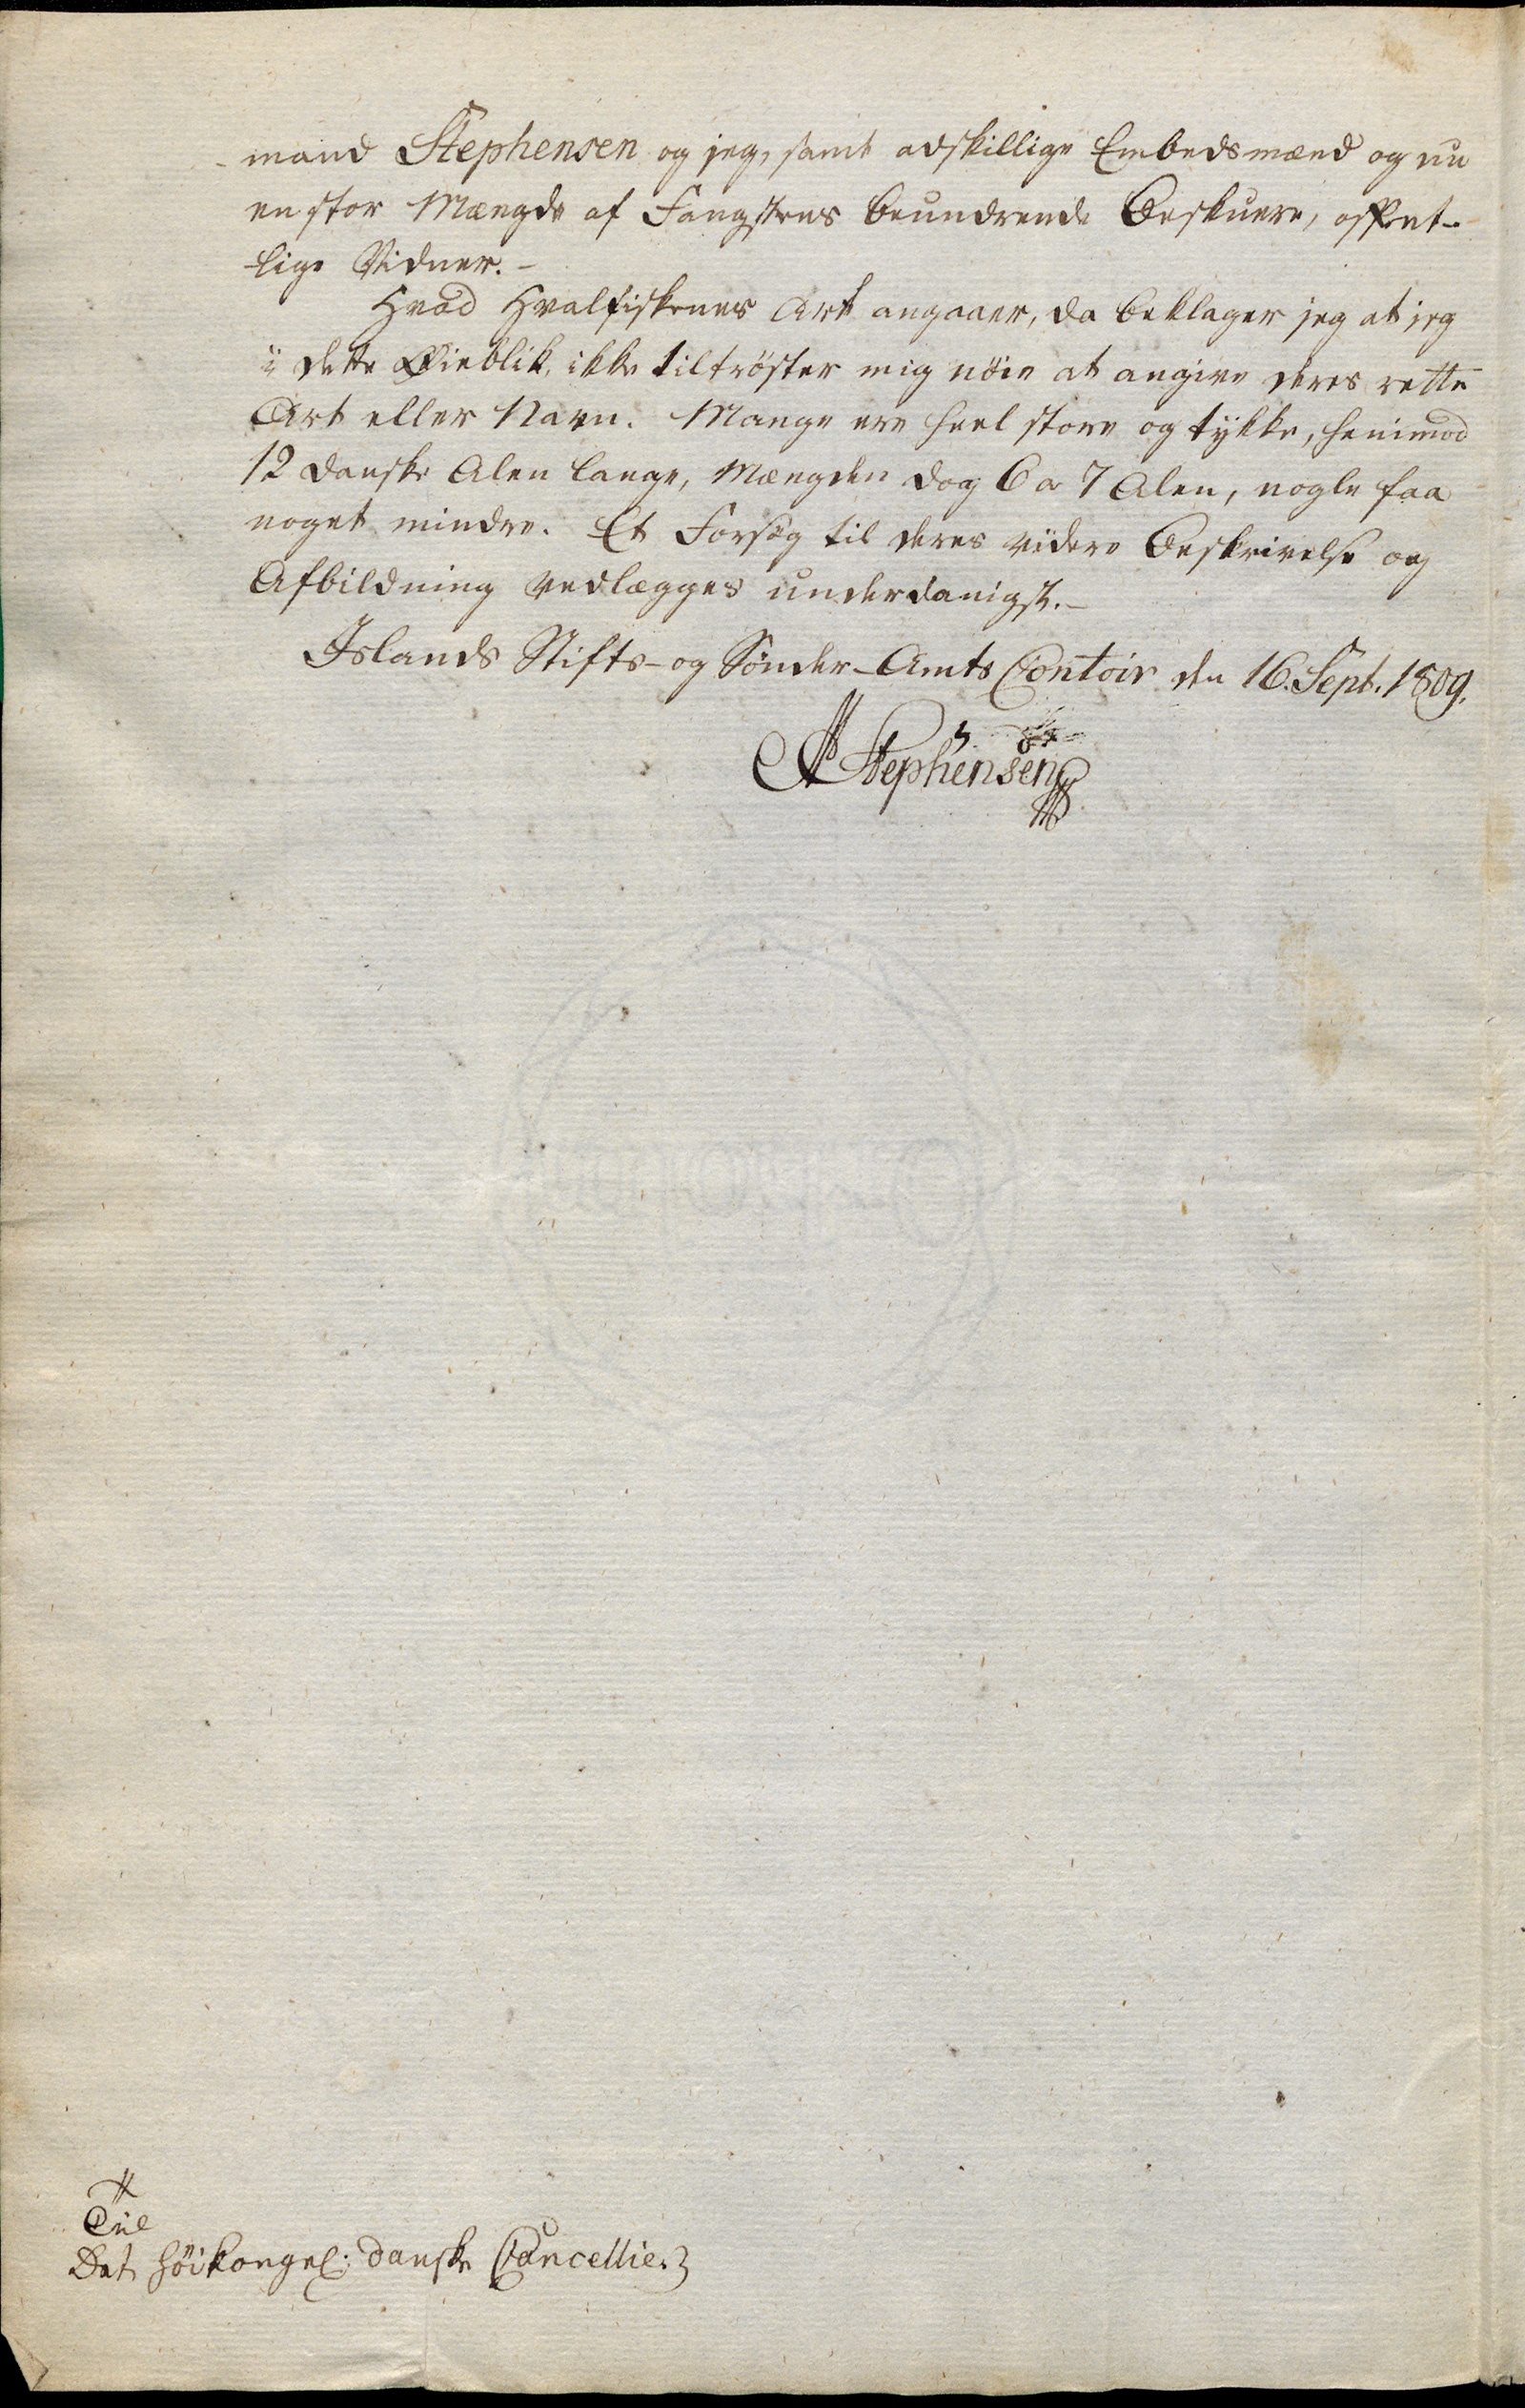 mand Stephensen og jeg, samt adskillige Embedsmænd og nu
en stor Mængde af Fangstens beundrende Beskuere, offent-
lige Vidner.-
Hvad Hvalfiskenes Art angaaer, da beklager jeg at jeg
i dette Øieblik, ikke tiltröster mig nöie at angive deres rette
Art eller Navn. Mange ere heel store og tykke, henimod
12 danske Alen lange, Mængden dog 6 a 7 Alen, nogle faa
noget mindre. Et Forsög til deres videre Beskrivelse og
Afbildning vedlægges underdanigst.-
Islands Stifts- og Sönder-Amts Contoir den 16. Sept. 1809.
Stephensen
Til
Det höikongel: danske Cancellie.